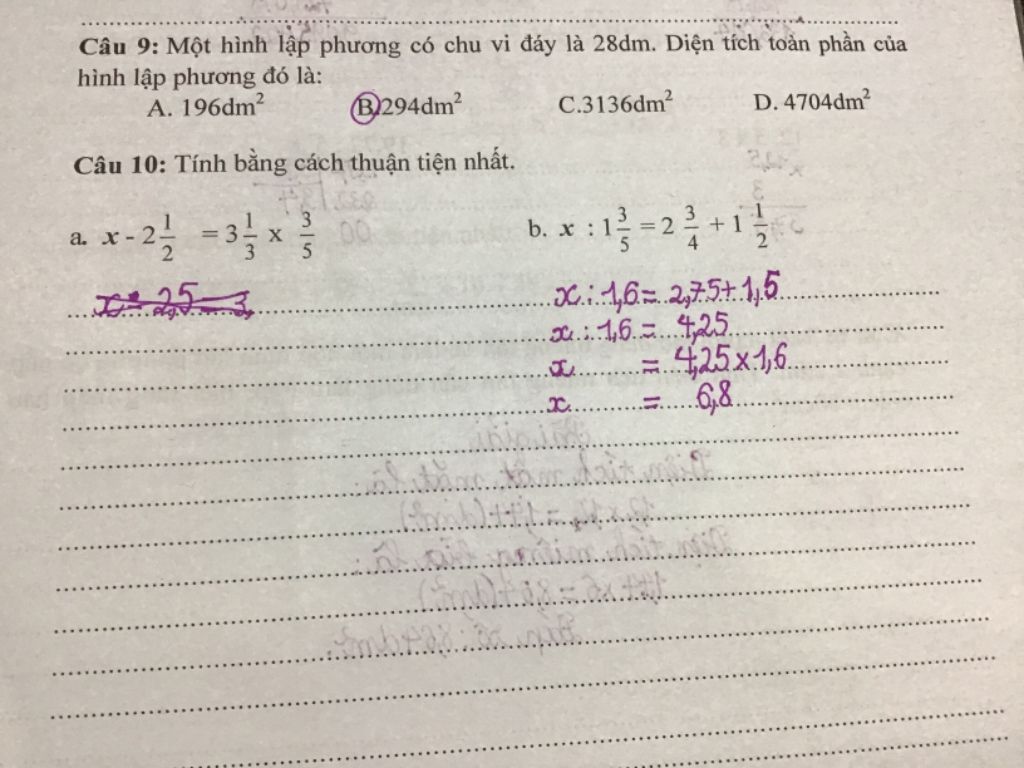 Câu 9: Một hình lập phương có chu vi đáy là 28dm. Diện tích toàn phần của
hình lập phương đó là:
A. 196dm² B.294dm² C.3136dm² D. 4704dm²
Câu 10: Tính bằng cách thuận tiện nhất.
a. x - 2 1/2 = 3 1/3 x 3/5 b. x : 1 3/5 = 2 3/4 + 1 1/2
x - 2,5 = 3, x : 1,6 = 2,75 + 1,5
x : 1,6 = 4,25
x = 4,25 x 1,6
x = 6,8